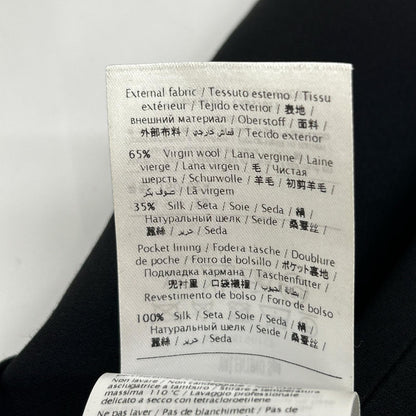 External fabric / Tessuto esterno / Tissu
extérieur / Tejido exterior / 表地 /
внешний материал / Oberstoff / 面料 /
外部布料 / قماش خارجي / Tecido exterior
65% Virgin wool / Lana vergine / Laine
vierge / Lana virgen / 毛 / Чистая
шерсть / Schurwolle / 羊毛 / 初剪羊毛 /
صوف بكر / Lã virgem
35% Silk / Seta / Soie / Seda / 絹 /
Натуральный шелк / Seide / 桑蚕丝 /
蠶絲 / حرير / Seda
Pocket lining / Fodera tasche / Doublure
de poche / Forro de bolsillo / ポケット裏地 /
Подкладка кармана / Taschenfutter /
兜衬里 / 口袋襯裡 / بطانة الجيوب /
Revestimento de bolso / Forro de bolso
100% Silk / Seta / Soie / Seda / 絹 /
Натуральный шелк / Seide / 桑蚕丝 /
蠶絲 / حرير / Seda
Non lavare / Non candeggiare /
asciugatrice a tamburo / Stirare a temperatura
massima 110°C / Lavaggio professionale
delicato a secco con tetracloroetilene
Ne pas laver / Pas de blanchiment / Pas de